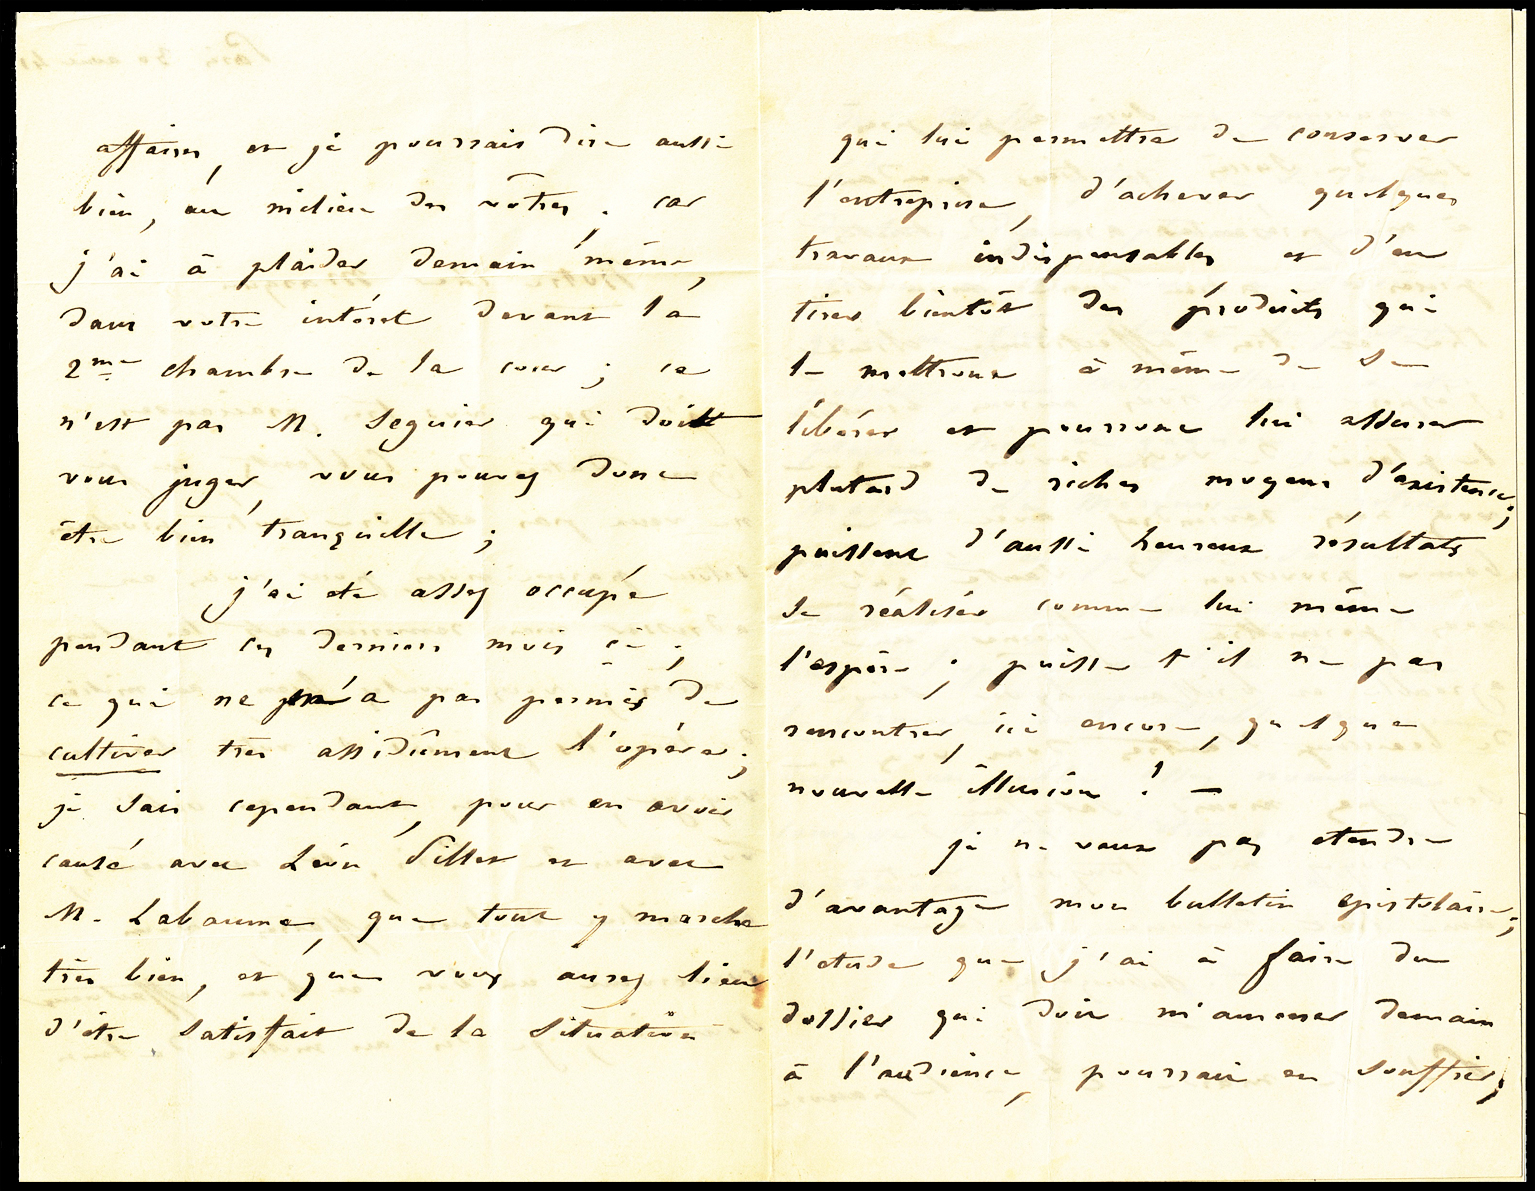 affaires, et je pourrais dire aussi
bien, au milieu des vôtres ; car
j'ai à plaider demain même,
dans votre intérêt devant la
2me chambre de la cour ; ce
n'est pas M. Seguier qui doit
vous juger, vous pouvez donc
être bien tranquille ;
j'ai été assez occupé
pendant ces derniers mois ci ;
ce qui ne m'a pas permis de
cultiver très assidûment l'opéra ;
je sais cependant, pour en avoir
causé avec Léon Pillet et avec
M. Labaume, que tout y marche
très bien, et que vous aurez lieu
d'être satisfait de la situation
qui lui permettra de conserver
l'entreprise, d'achever quelques
travaux indispensables et d'en
tirer bientôt des produits qui
le mettront à même de se
libérer et pourront lui assurer
plutard de riches moyens d'existence ;
puissent d'aussi heureux résultats
se réaliser comme lui même
l'espère ; puisse t'il ne pas
rencontrer, ici encore, quelque
nouvelle illusion ! —
je ne veux pas etendre
d'avantage mon bulletin epistolaire ;
l'etude que j'ai à faire du
dossier qui doit m'amener demain
à l'audience, pourrait en souffrir,